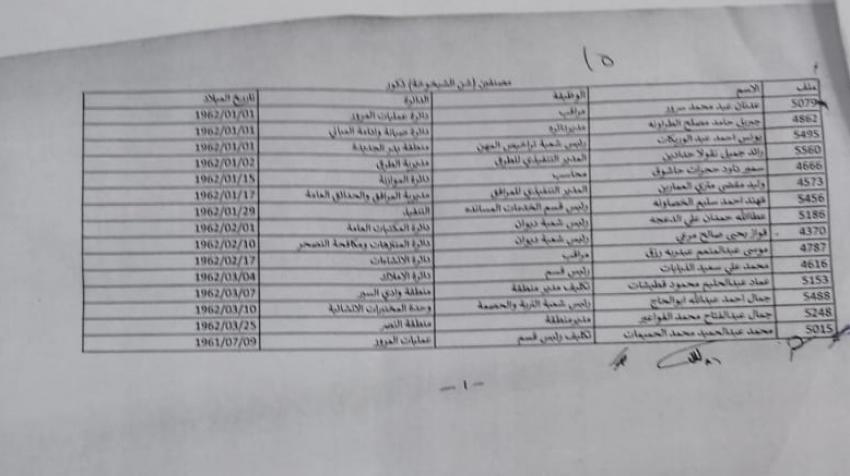 ١٥
مصنفين (سن الشيخوخة) ذكور
ملف الاسم الوظيفة الدائرة تاريخ الميلاد
5079 عدنان عيد محمد سرور مراقب دائرة عمليات المرور 1962/01/01
4862 جبريل حامد مصلح الطراونه مدير دائرة دائرة صيانة وادامة المباني 1962/01/01
5495 يونس احمد عبد الوريكات رئيس شعبة تراخيص المهن منطقة بدر الجديدة 1962/01/01
5560 رائد جميل نقولا حدادين المدير التنفيذي للطرق مديرية الطرق 1962/01/02
4666 سمير داود محاسب دائرة الموازنة 1962/01/15
4573 وليد المدير التنفيذي للمرافق مديرية المرافق والحدائق العامة 1962/01/17
5456 فهد احمد سليم الخصاونه رئيس قسم الخدمات المسانده التنفيذ 1962/01/29
5186 عطاالله حمدان علي الدعجه رئيس شعبة ديوان دائرة المكتبات العامة 1962/02/01
4370 فواز يحيى صالح مرعي رئيس شعبة ديوان دائرة المتنزهات ومكافحة التصحر 1962/02/10
4787 موسى عبدالمنعم عبدربه رزق مراقب دائرة الانشاءات 1962/02/17
4616 محمد علي سعيد الذيابات رئيس قسم دائرة الاملاك 1962/03/04
5153 عماد عبدالحليم محمود قطيشات تكليف مدير منطقة منطقة وادي السير 1962/03/07
5488 جمال احمد عبدالله ابوالحاج رئيس شعبة التربة والحصمة وحدة المختبرات الانشائية 1962/03/10
5248 جمال عبدالفتاح محمد الفواعير مدير منطقة منطقة النصر 1962/03/25
5015 محمد عبدالحميد محمد الحميمات تكليف رئيس قسم عمليات المرور 1961/07/09
-١-